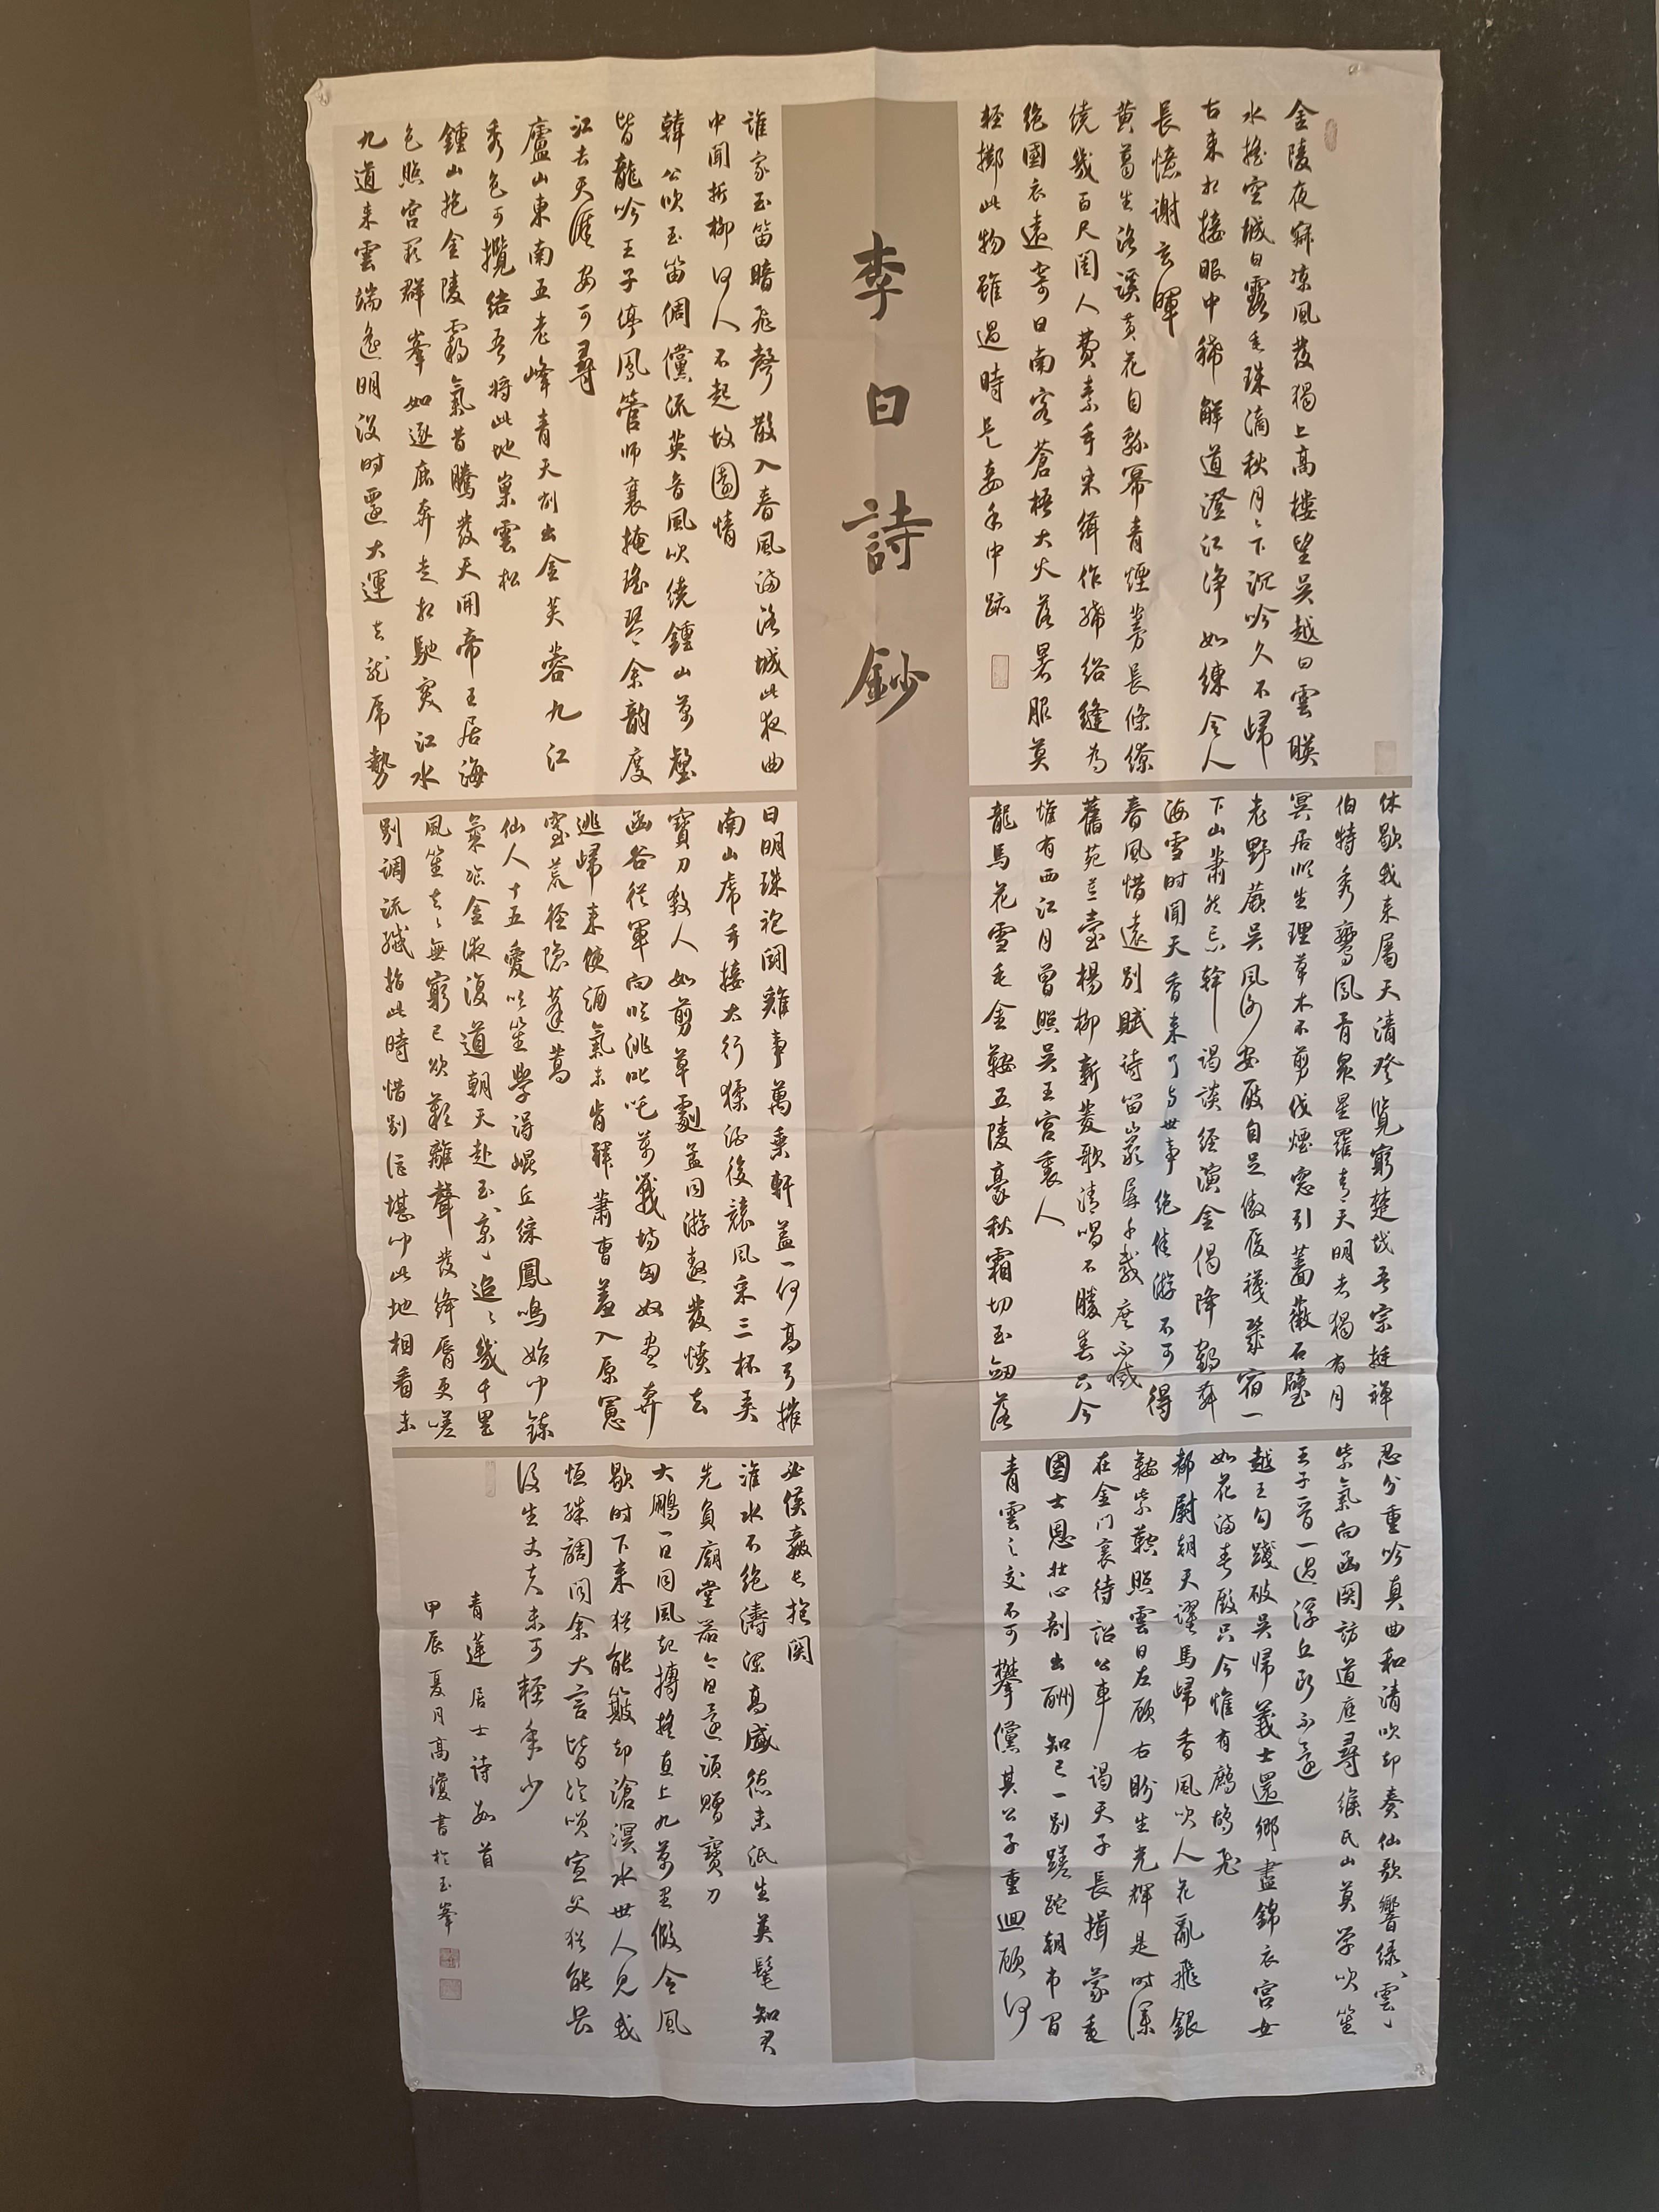 李白詩鈔
金陵夜寂涼風發獨上高樓望吳越白雲映
水搖空城白露垂珠滴秋月〻下沉吟久不歸
古来相接眼中稀解道澄江浄如練令人
長憶謝玄暉
黃葛生洛溪黃花自緜冪青煙蔓長條繚
繞幾百尺閨人費素手采緝作絺綌縫為
絕國衣遠寄日南客蒼梧大火落暑服莫
輕擲此物雖過時是妾手中跡
誰家玉笛暗飛聲散入春風滿洛城此夜曲
中聞折柳何人不起故園情
韓公吹玉笛倜儻流英音風吹繞鍾山萬壑
皆龍吟王子停鳳管师襄掩瑤琴余韻度
江去天涯安可尋
廬山東南五老峰青天削出金芙蓉九江
秀色可攬結吾將此地巢雲松
鍾山抱金陵霸氣昔騰發天開帝王居海
色照宮闕群峯如逐鹿奔走相馳突江水
九道来雲端遙明沒时還大運去龍虎勢
休歇我来屬天清登覽窮楚越吾宗挺禪
伯特秀鸞鳳骨衆星羅青天明者獨有月
冥居順生理草木不剪伐煙窗引薔薇石壁
老野蕨吳風謝安屐白足傲履襪幾宿一
下山蕭然忘幹謁談經演金偈降鶴舞
海雪时聞天香来了与世事絕佳游不可得
春風惜遠別賦詩留巖屏千載庶不滅
舊苑荒臺楊柳新菱歌清唱不勝春只今
惟有西江月曾照吳王宮裏人
龍馬花雪毛金鞍五陵豪秋霜切玉劍落
日明珠袍鬥雞事萬乘軒蓋一何高弓摧
南山虎手接太行猱酒後競風采三杯弄
寶刀殺人如剪草劇孟同游遨發憤去
函谷從軍向臨洮叱咤萬戰場匈奴盡奔
逃歸来使酒氣未肯拜蕭曹羞入原憲
室荒徑隱蓬蒿
仙人十五愛吹笙學得崐丘綵鳳鳴始聞鍊
氣湌金液復道朝天赴玉京〻迢〻幾千里
鳳笙去〻無窮已欲歎離聲發絳脣更嗟
別調流纖指此時惜別詎堪聞此地相看未
忍分重吟真曲和清吹却奏仙歌響綠雲〻
紫氣向函關訪道應尋緱氏山莫学吹笙
王子晉一遇浮丘斷不還
越王勾踐破吳歸義士還鄉盡錦衣宮女
如花滿春殿只今惟有鷓鴣飛
都尉朝天躍馬歸香風吹人花亂飛銀
鞍紫鞚照雲日左顧右盼生光輝是时僕
在金門裏待詔公車謁天子長揖蒙垂
國士恩壯心剖出酬知己一別蹉跎朝市間
青雲之交不可攀儻其公子重迴顧何
必侯嬴長抱關
淮水不絕濤瀾高盛德未泯生英髦知君
先負廟堂器今日還須贈寶刀
大鵬一日同風起搏搖直上九萬里假令風
歇时下来猶能簸却滄溟水世人見我
恒殊調聞余大言皆冷笑宣父猶能畏
後生丈夫未可輕年少
青蓮居士詩數首
甲辰夏月高瓊書於玉峯